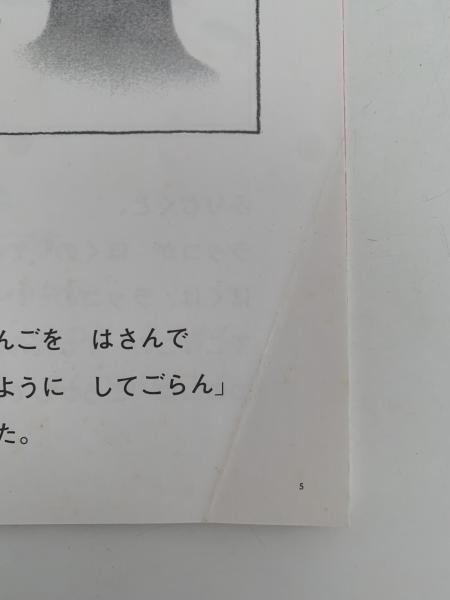 んごを　はさんで
ように　してごらん」
た。
5